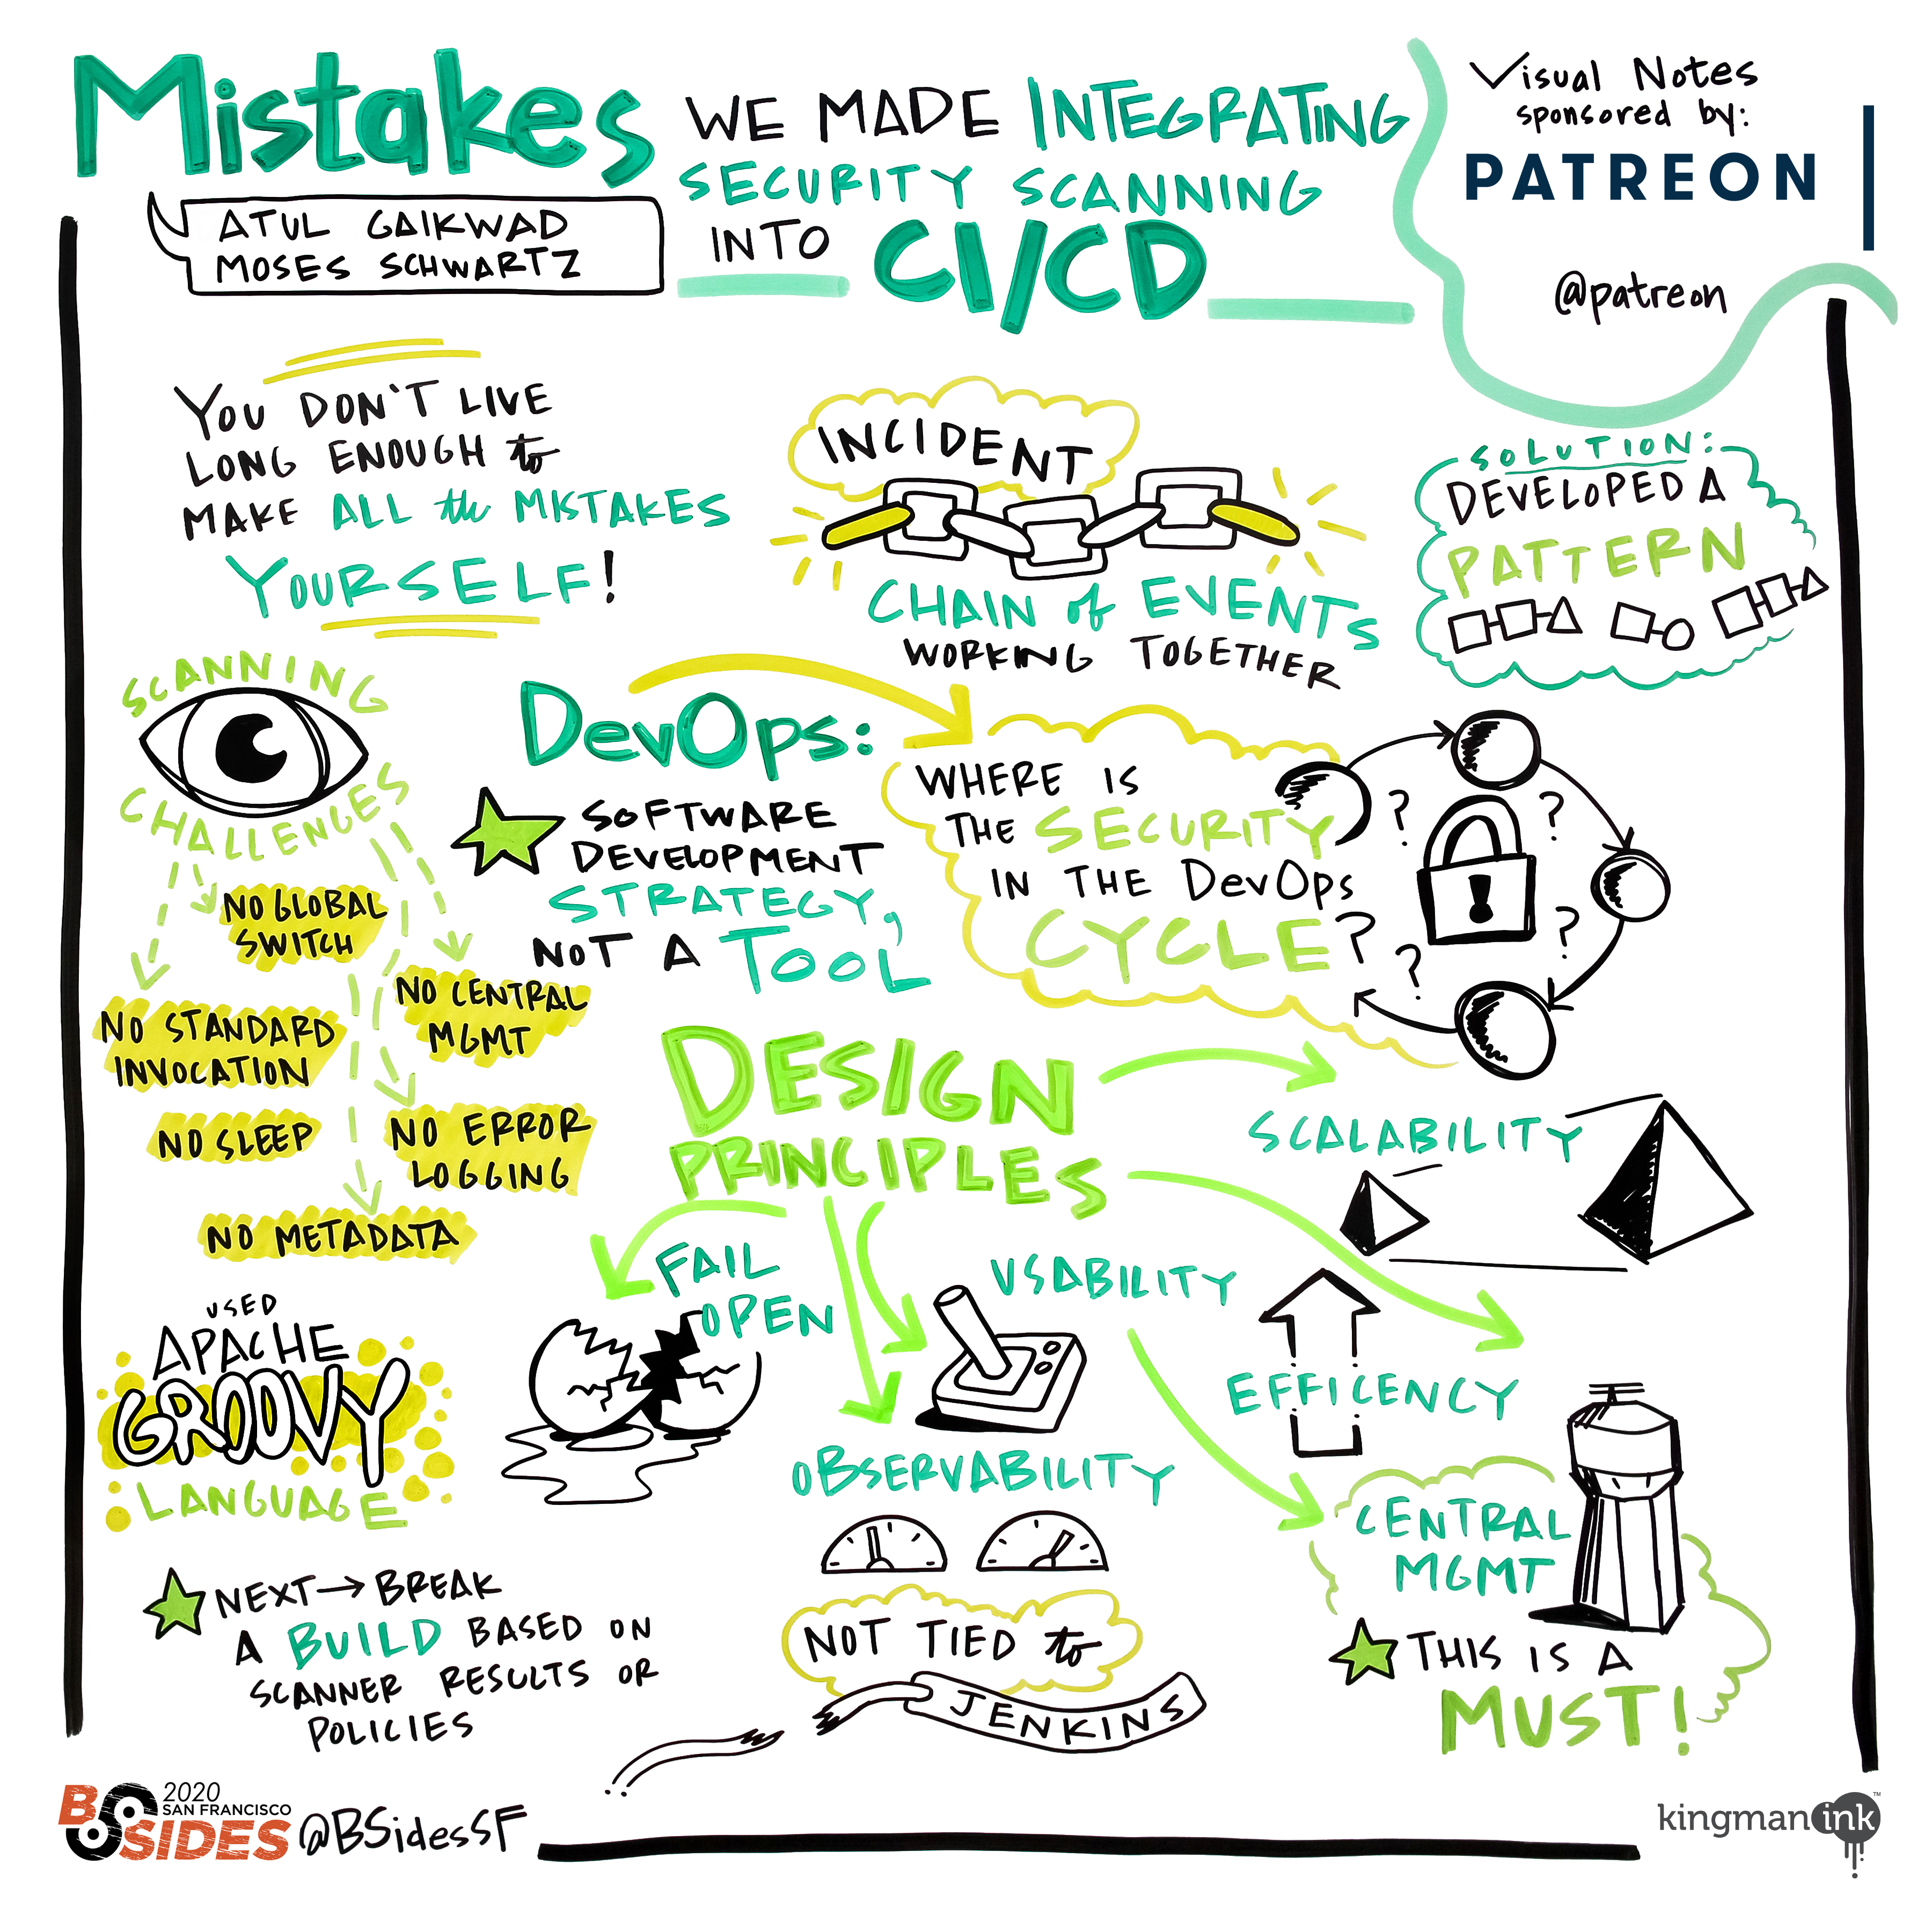 Mistakes
WE MADE INTEGRATING
SECURITY SCANNING
INTO CI/CD
ATUL GAIKWAD
MOSES SCHWARTZ
Visual Notes
sponsored by:
PATREON
@patreon
YOU DON'T LIVE
LONG ENOUGH to
MAKE ALL the MISTAKES
YOURSELF!
INCIDENT
CHAIN of EVENTS
WORKING TOGETHER
SOLUTION:
DEVELOPED A
PATTERN
SCANNING
CHALLENGES
NO GLOBAL
SWITCH
NO CENTRAL
MGMT
NO STANDARD
INVOCATION
NO SLEEP
NO ERROR
LOGGING
NO METADATA
DevOps:
SOFTWARE
DEVELOPMENT
STRATEGY,
NOT A TOOL
WHERE IS
THE SECURITY
IN THE DevOps
CYCLE?
? ? ? ?
DESIGN
PRINCIPLES
SCALABILITY
FAIL
OPEN
USABILITY
EFFICENCY
OBSERVABILITY
CENTRAL
MGMT
THIS IS A
MUST!
USED
APACHE
GROOVY
LANGUAGE
NEXT → BREAK
A BUILD BASED ON
SCANNER RESULTS OR
POLICIES
NOT TIED to
JENKINS
BSIDES
2020
SAN FRANCISCO
@BSidesSF
kingman ink™